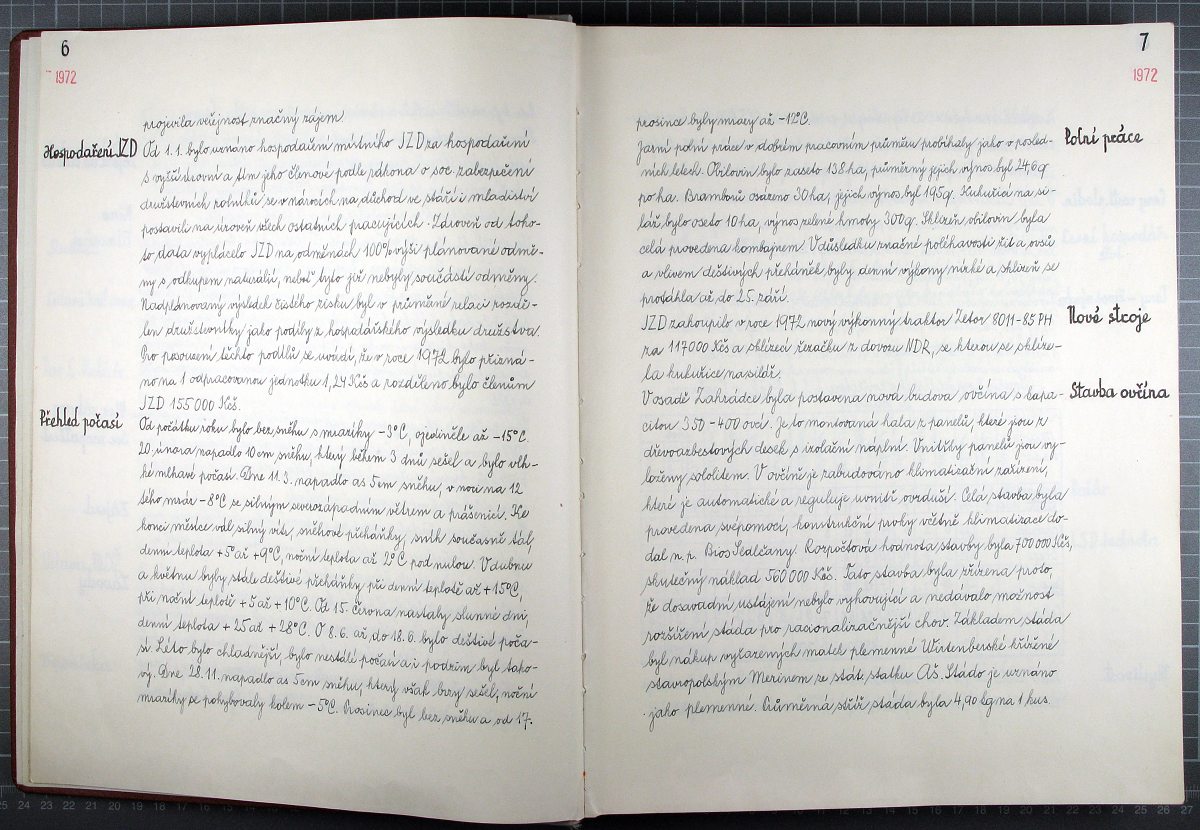 6
1972
projevila veřejnost značný zájem.
Hospodaření JZD
Od 1.1. bylo uznáno hospodaření místního JZD za hospodaření
s vyšší úrovní a tím jeho členové podle zákona o soc. zabezpečení
družstevních rolníků, se v nárocích na důchod ve stáří i mladiství
postavili na úroveň všech ostatních pracujících. Zároveň od toho-
to data vyplácelo JZD na odměnách 100% výši plánované odmě-
ny s odkupem naturálií, neboť byto již nebyly součástí odměny.
Nadplánovaný výsledek čistého zisku byl v přiměřené relaci rozdě-
len družstevníky jako podíly z hospodářského výsledku družstva.
Pro posouzení těchto podílů se uvádí, že v roce 1972 bylo přizná-
no na 1 odpracovanou jednotku 1,24 Kčs a rozděleno bylo členům
JZD 155000 Kčs.
Přehled počasí
Od počátku roku bylo bez sněhu s mrazíky -3°C, ojediněle až -15°C.
20. února napadlo 10 cm sněhu, který během 3 dnů sešel a bylo vlh-
ké mlhavé počasí. Dne 11.3. napadlo as 5cm sněhu, v noci na 12
tého mráz -8°C se silným severozápadním větrem a prášenicí. Ke
konci měsíce vál silný vítr, sněhové přeháňky, sníh současně tál,
denní teplota +5° až +9°C, noční teplota až 2°C pod nulou. V dubnu
a květnu byly stálé deštivé přeháňky, při denní teplotě až +15°C,
při noční teplotě +5 až +10°C. Od 15. června nastaly slunné dni,
denní teplota +25 až +28°C. O 8.6. až do 18.6. bylo deštivé poča-
sí. Léto bylo chladnější, bylo nestálé počasí a i podzim byl tako-
vý. Dne 28.11. napadlo as 5cm sněhu, který však brzy sešel, noční
mrazíky se pohybovaly kolem -5°C. Prosinec byl bez sněhu a od 17.
7
1972
prosince byly mrazy až -12°C.
Polní práce
Jarní polní práce v dobrém pracovním průměru probíhaly jako v posled-
ních letech. Obilovin bylo zaseto 138 ha, průměrný jejich výnos byl 24,6 q
po ha. Bramborů osázeno 30 ha, jejich výnos byl 195 q. Kukuřicí na si-
láž bylo oseto 10 ha, výnos zelené hmoty 300 q. Sklizeň obilovin byla
celá provedena kombajnem. V důsledku značné poléhavosti žit a ovsů
a vlivem deštivých přeháněk byly denní výkony nízké a sklizeň se
protáhla až do 25. září.
Nové stroje
JZD zakoupilo v roce 1972 nový výkonný traktor Zetor 8011-85 PH
za 117000 Kčs a sklízecí řezačku z dovozu NDR, se kterou se sklíze-
la kukuřice na siláž.
Stavba ovčína
V osadě Zahrádce byla postavena nová budova ovčína s kapa-
citou 350-400 ovcí. Je to montovaná hala z panelů, které jsou z
dřevoazbestových desek s izolační náplní. Vnitřky panelů jsou vy-
loženy sololitem. V ovčíně je zabudováno klimatizační zařízení,
které je automatické a reguluje uvnitř ovzduší. Celá stavba byla
provedena svépomocí, konstrukční prvky včetně klimatizace do-
dal n.p. Bios Sedlčany. Rozpočtová hodnota stavby byla 700000 Kčs,
skutečný náklad 560000 Kčs. Tato stavba byla zřízena proto,
že dosavadní ustájení nebylo vyhovující a nedávalo možnost
rozšíření stáda pro racionalizačnější chov. Základem stáda
byl nákup vyřazených matek plemenné Würtenberské křížené
stavropolským Merinem ze stát. statku Aš. Stádo je uznáno
jako plemenné. Průměrná stříž stáda byla 4,90 kg na 1 kus.